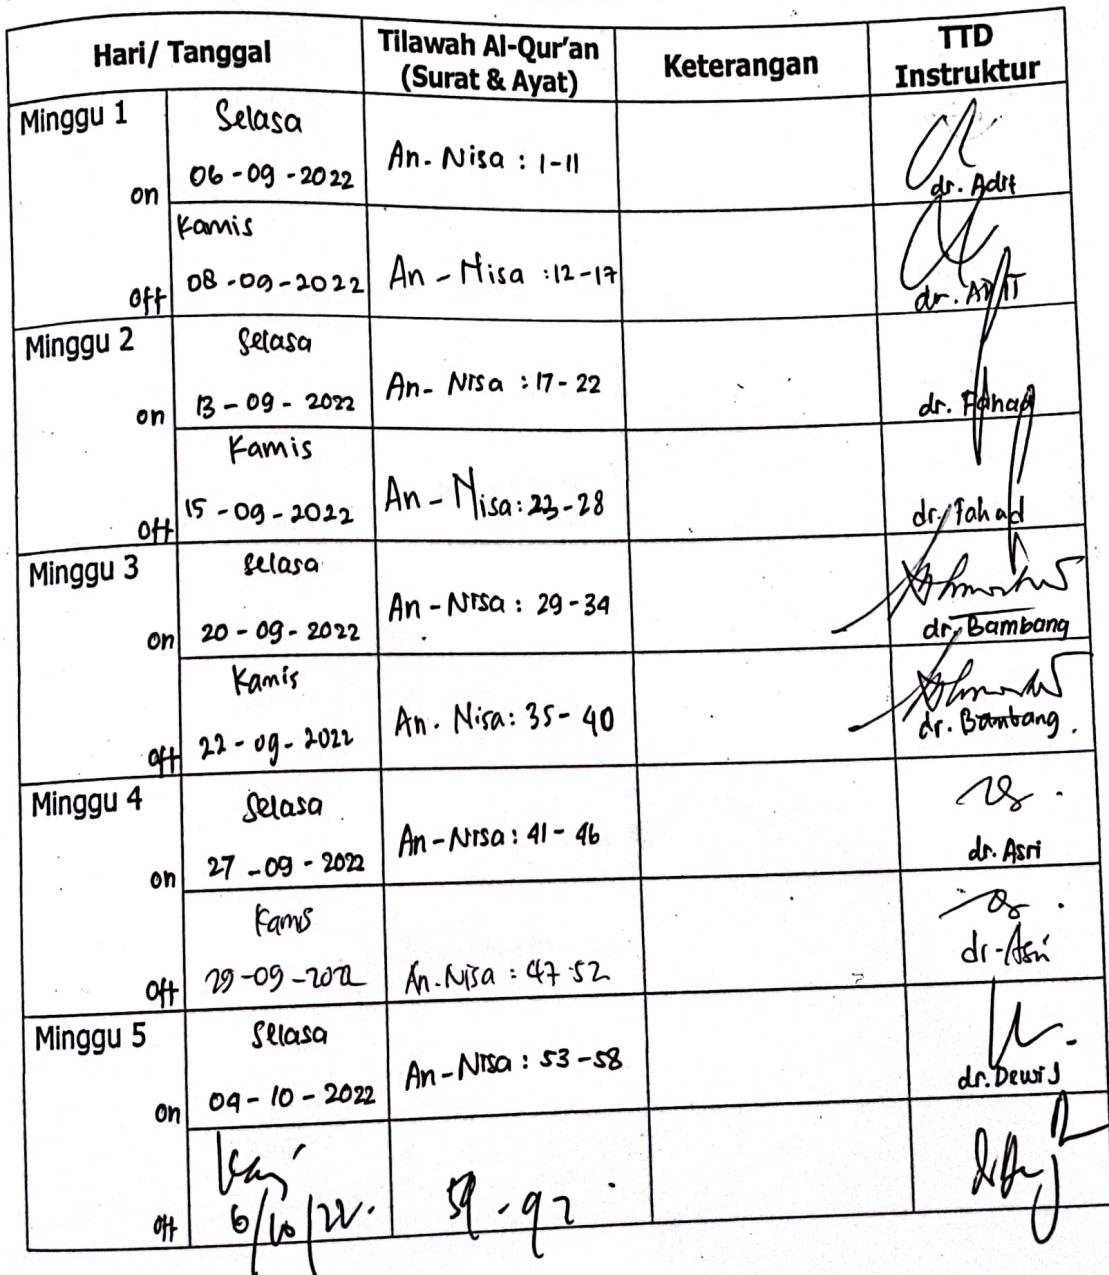 Hari/ Tanggal
Tilawah Al-Qur'an
(Surat & Ayat)
Keterangan
TTD
Instruktur
Minggu 1
on
Selasa
06-09-2022
An-Nisa : 1-11
dr. Adit
Off
Kamis
08-09-2022
An-Nisa :12-17
dr. ADIT
Minggu 2
on
Selasa
13-09-2022
An-Nisa :17-22
dr. Fahad
Off
Kamis
15-09-2022
An-Nisa: 23-28
dr. Fahad
Minggu 3
on
Selasa
20-09-2022
An-Nisa : 29-34
dr. Bambang
Off
Kamis
22-09-2022
An. Nisa: 35-40
dr. Bambang.
Minggu 4
on
Selasa
27-09-2022
An-Nisa: 41-46
dr. Asri
Off
Kamis
29-09-2022
An-Nisa : 47-52
dr-Asri
Minggu 5
on
Selasa
04-10-2022
An-Nisa : 53-58
dr. Dewi J
off
6/10/22.
59-92